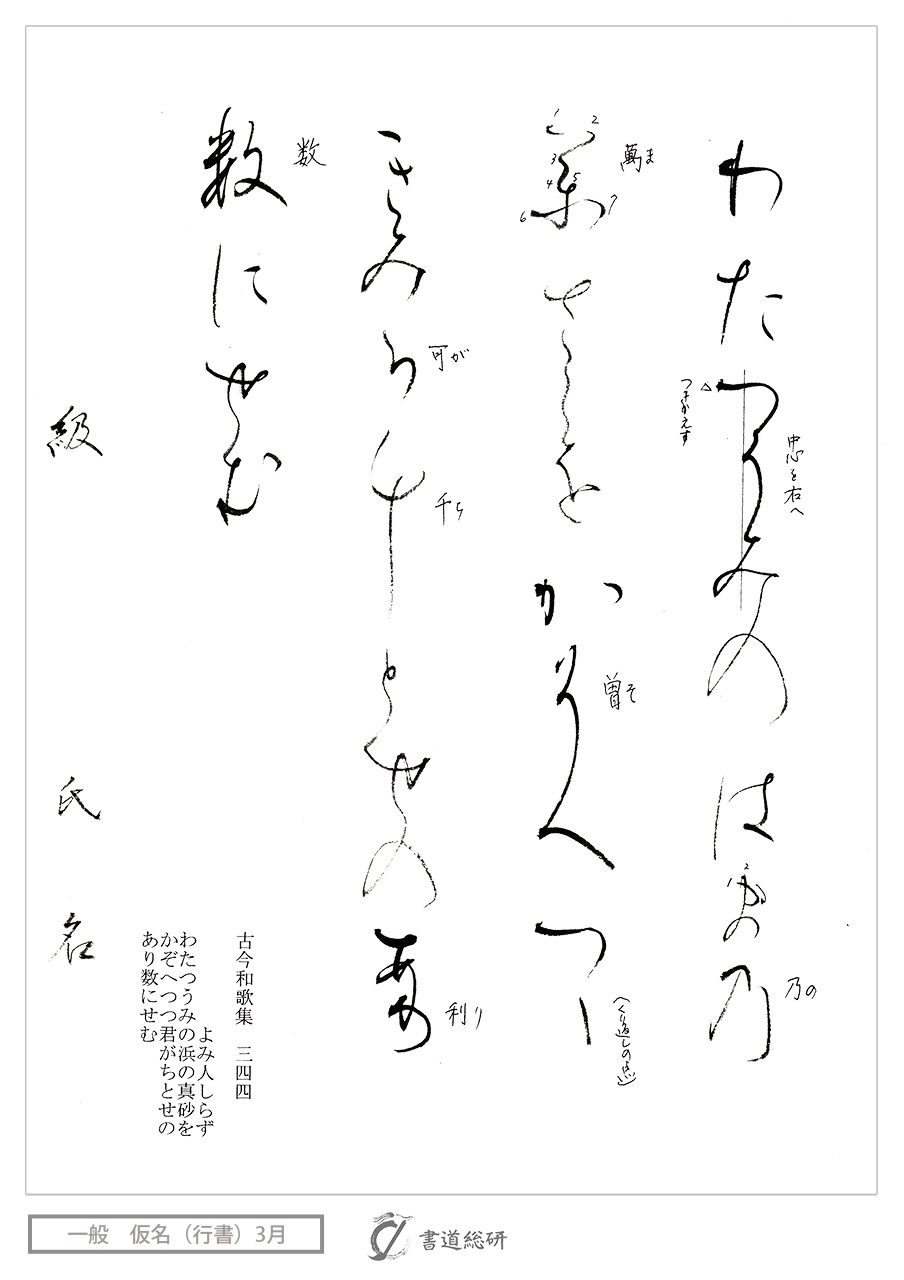 わたつうみのは満乃
乃の
中心を右へ
△
つきかえす
萬さこを
萬ま
かそへつゝ
曽そ
(くり返しの点)
きみ可千とせのあ利
可が
千ち
利り
数にせむ
数
級 氏名
古今和歌集 三四四
よみ人しらず
わたつうみの浜の真砂を
かぞへつつ君がちとせの
あり数にせむ
一般 仮名（行書）3月
書道総研